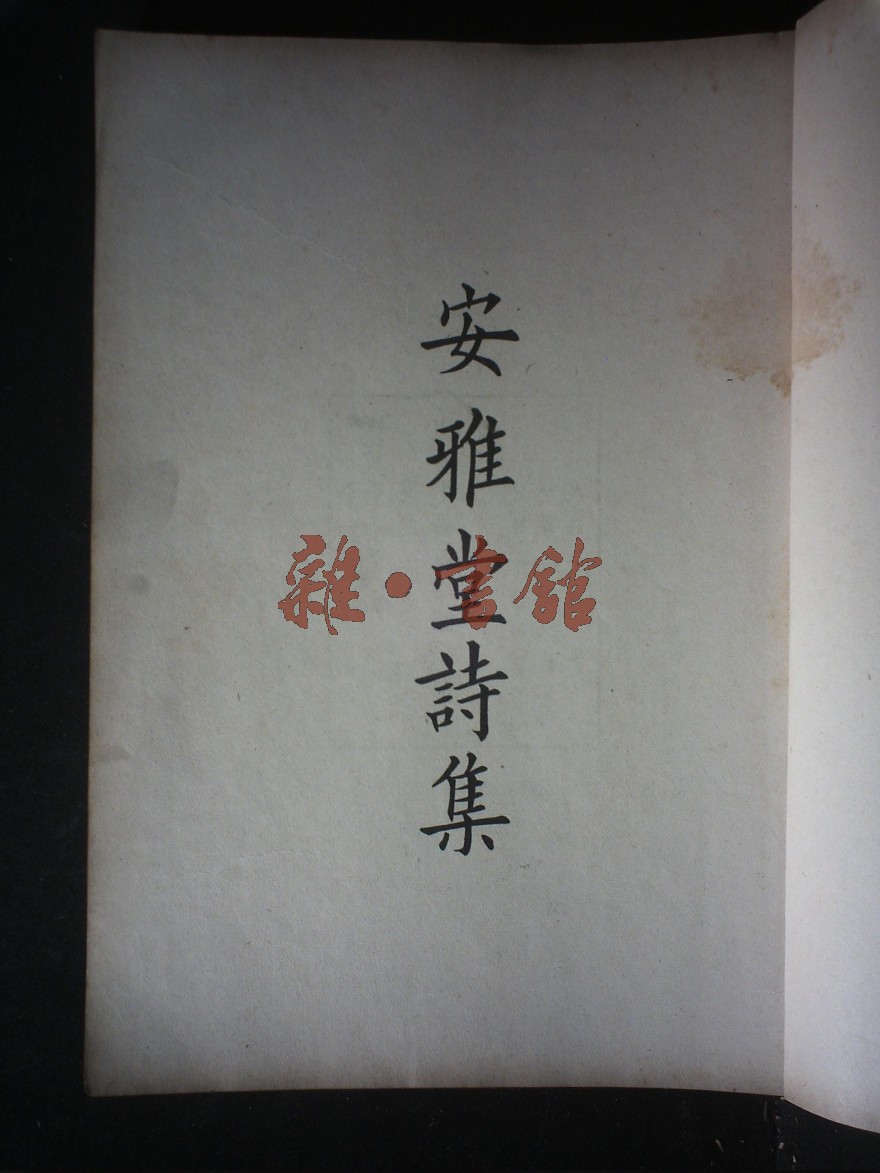 安雅堂詩集
雜·書館